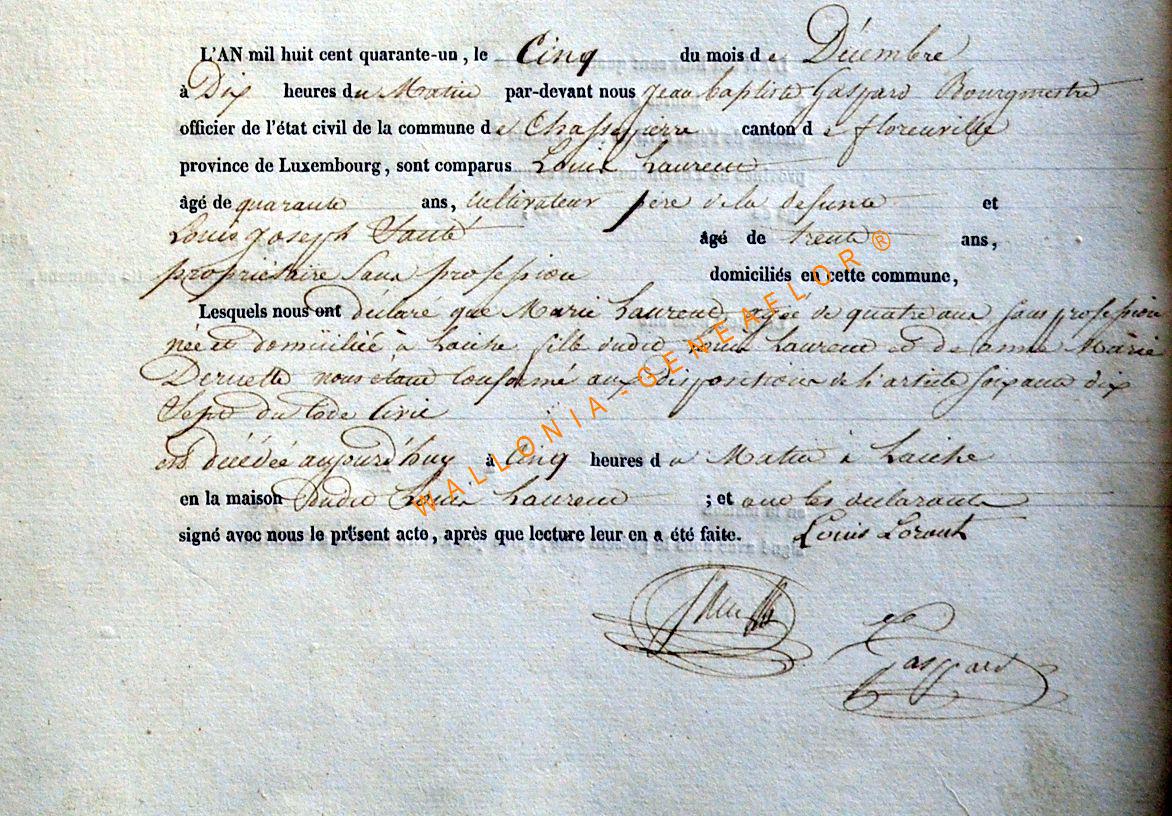 L'AN mil huit cent quarante-un, le Cinq du mois de Décembre
à Dix heures du Matin par-devant nous Jean baptiste Gaspard Bourgmestre
officier de l'état civil de la commune de Chassepierre canton de florenville
province de Luxembourg, sont comparus Louis Laurent
âgé de quarante ans, Cultivateur père de la defunte et
Louis Joseph âgé de trente ans,
propriétaire Sans profession domiciliés en cette commune,
Lesquels nous ont déclaré que Marie Laurent, agée de quatre ans sans profession
née et domiciliée à Laiche fille dudit Louis Laurent et de anne Marie
nous étant Conformé aux dispositions de l'article soixante dix
Sept du Code Civil
est décédée aujourd'huy à Cinq heures du Matin à Laiche
en la maison dudit Louis Laurent ; et que les déclarants
signé avec nous le présent acte, après que lecture leur en a été faite. Louis Lorent
Gaspard
WALLONIA-GENEAFLOR®